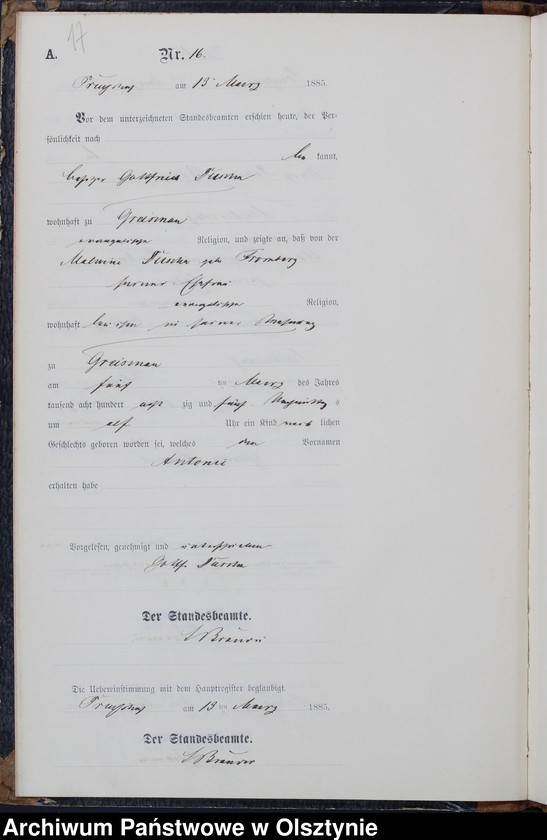 17
A. Nr. 16.
am 13 März 1885.
Vor dem unterzeichneten Standesbeamten erschien heute, der Per-
sönlichkeit nach
be kannt,
Besitzer Gottfried
wohnhaft zu
evangelischer Religion, und zeigte an, daß von der
Malwine geb Fromberg
seiner Ehefrau
evangelischer Religion,
wohnhaft bei ihm in seiner Wohnung
zu
am fünf ten März des Jahres
tausend acht hundert acht zig und fünf Nachmittag s
um elf Uhr ein Kind weib lichen
Geschlechts geboren worden sei, welches den Vornamen
Antonie
erhalten habe
Vorgelesen, genehmigt und unterschrieben
Gottf.
Der Standesbeamte.
Die Uebereinstimmung mit dem Hauptregister beglaubigt
am 13 ten März 1885.
Der Standesbeamte.
Archiwum Państwowe w Olsztynie